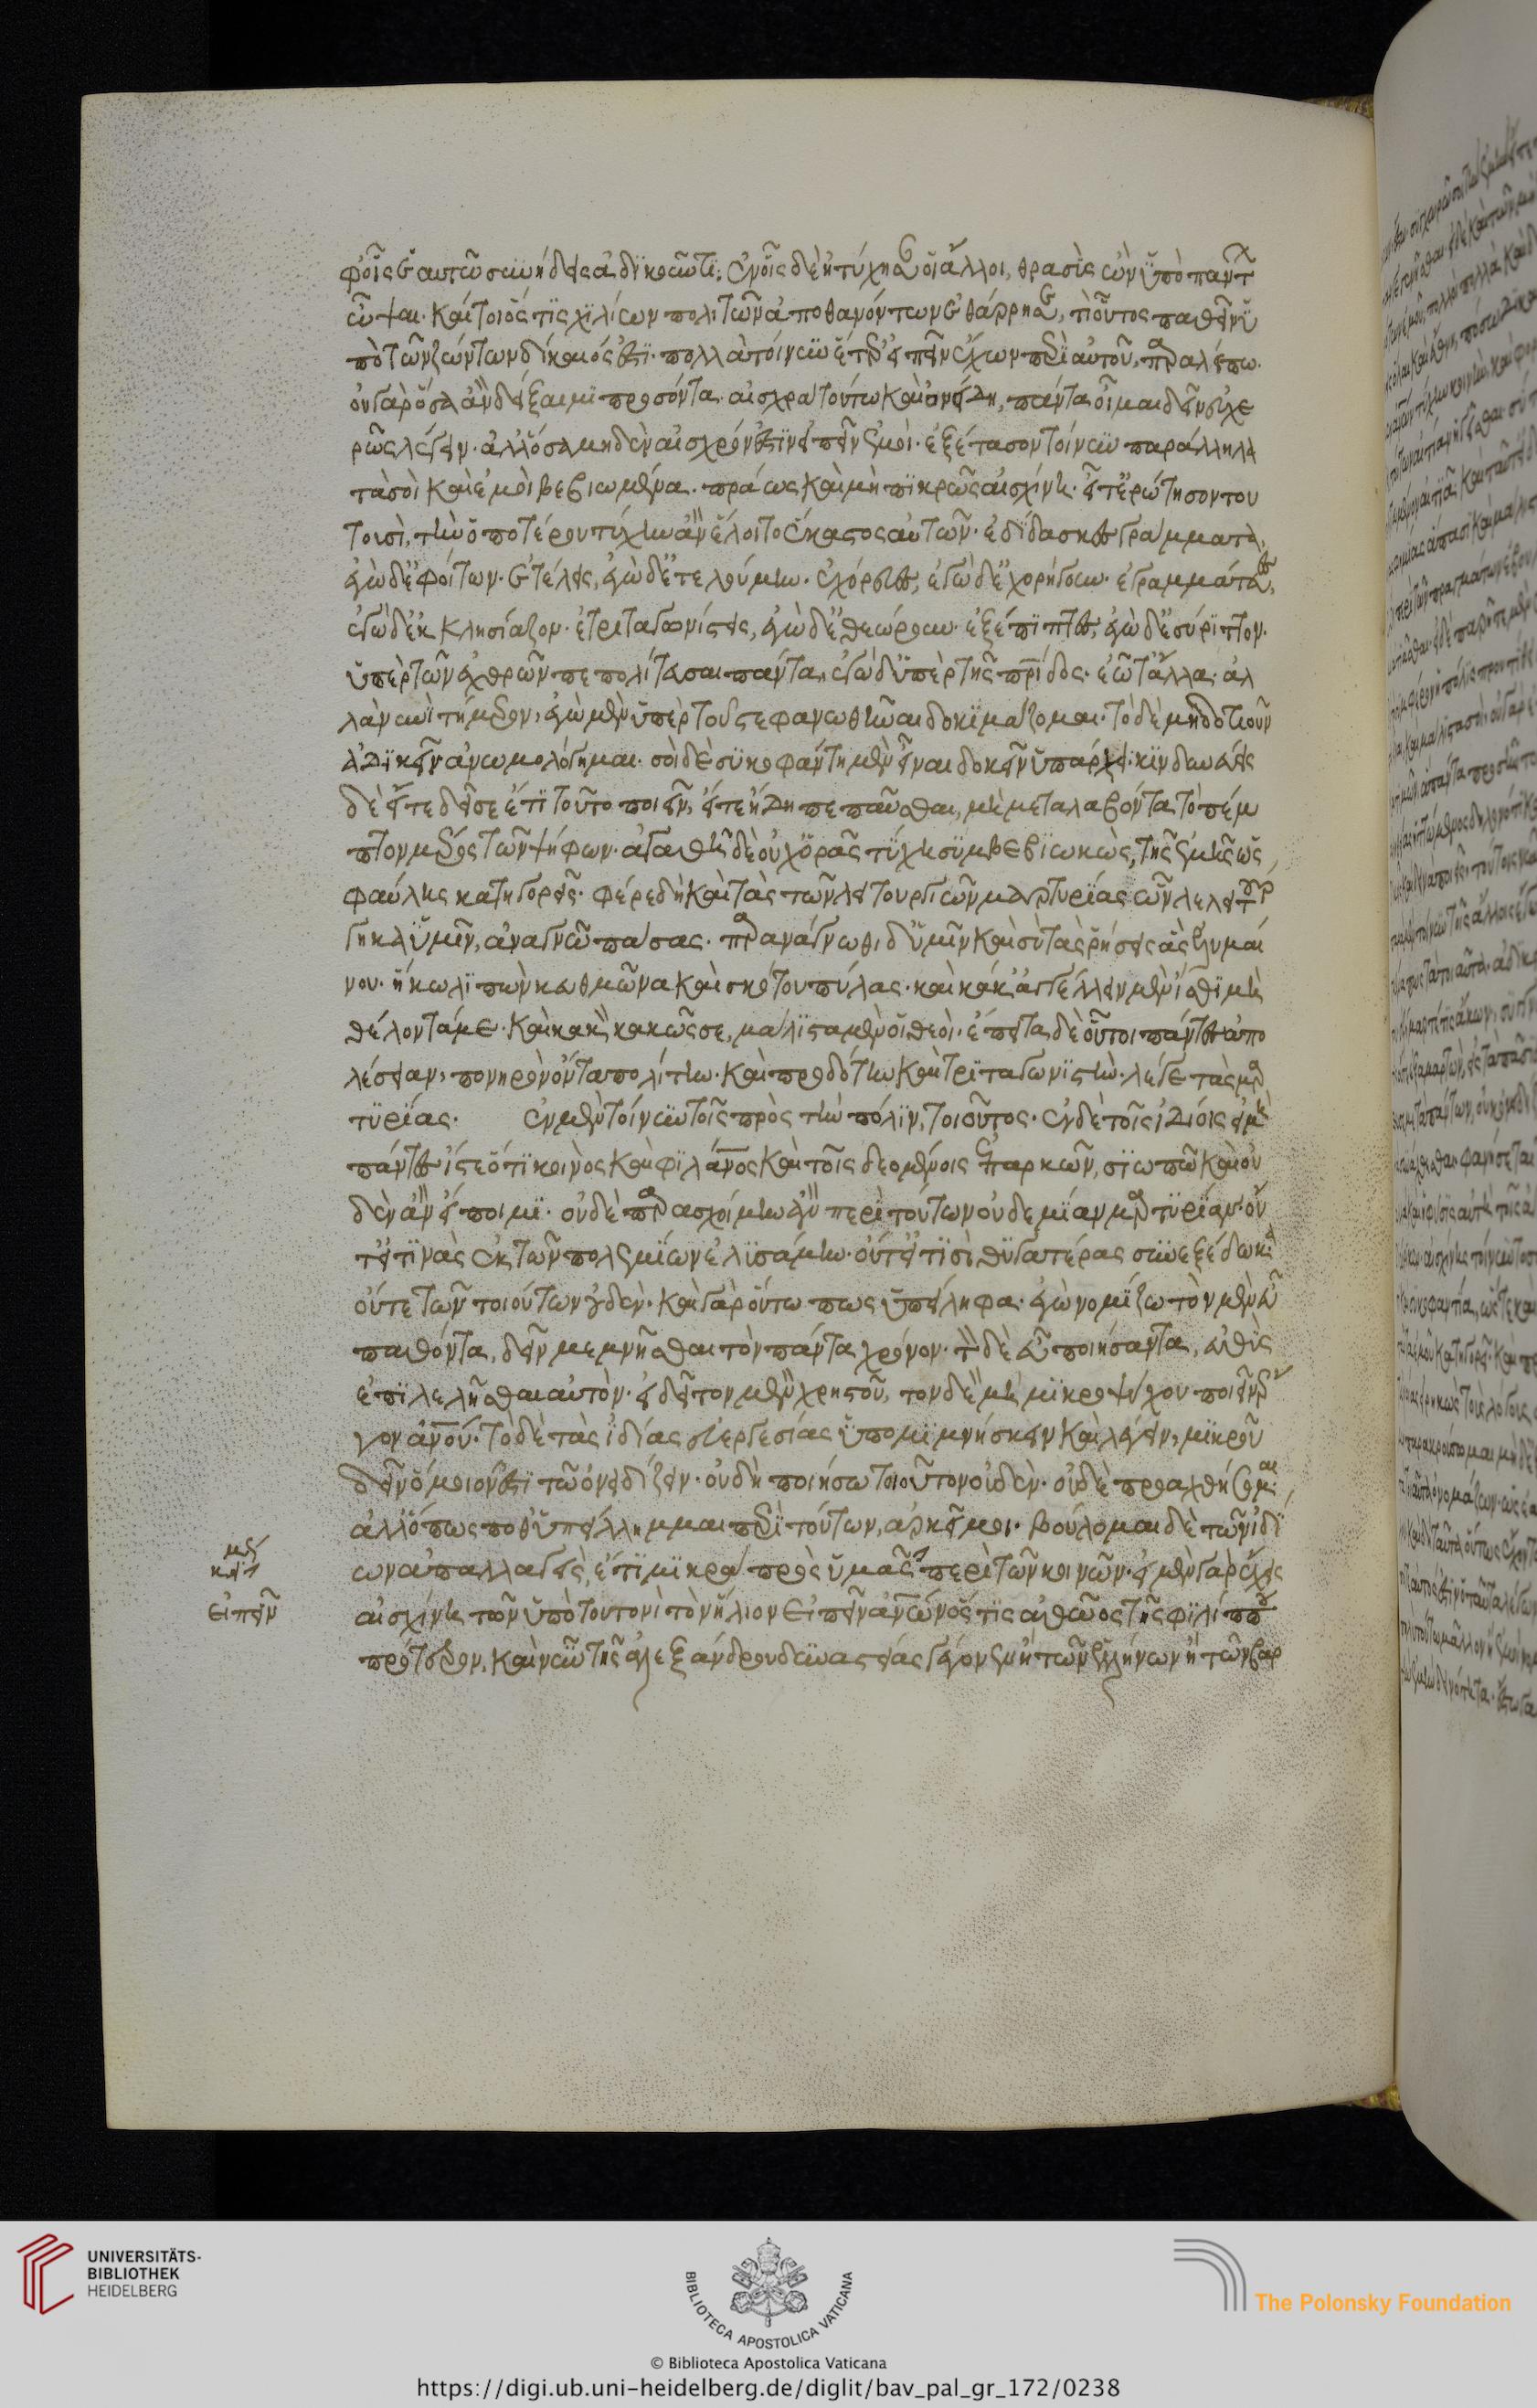 φοῖς ἑαυτῶ συνήδεις ἀδικοῦντι· ἐν οἷς δὲ ητύχησαν οἱ ἄλλοι, θρασὺς ὢν ὑπὸ πάντων
ὦψαι. καίτοι ὅς τις χιλίων πολιτῶν ἀποθανόντων ἐθάρρησε, τί οὗτος παθεῖν ὑ
πὸ τῶν ζώντων δίκαιός ἐστι. πολλὰ τοίνυν ἕτερ εἰπεῖν ἔχων περὶ αὐτοῦ, παραλείπω.
οὐ γὰρ ὅσα ἂν δείξαιμι προσόντα αἰσχρὰ τούτω καὶ ὀνείδη, πάντα οἶμαι δεῖν εὐχε
ρῶς λέγειν. ἀλλ' ὅσα μηδὲν αἰσχρόν ἐστιν εἰπεῖν ἐμοί. ἐξέτασον τοίνυν παράλληλα
τὰ σοὶ καὶ ἐμοὶ βεβιωμένα. πράως καὶ μὴ πικρῶς αἰσχίνη. εἶτ' ἐρώτησον του
τουσὶ, τὴν ὁποτέρου τύχην ἂν ἕλοιτο ἕκαστος αὐτῶν. ἐδίδασκες γράμματα,
ἐγὼ δ' ἐφοίτων. ἐτέλεις, ἐγὼ δ' ἐτελούμην. ἐχόρευες, ἐγὼ δ' ἐχορήγουν. ἐγραμμάτευες,
ἐγὼ δ' ἐκκλησίαζον. ἐτριταγωνίστεις, ἐγὼ δ' ἐθεώρουν. ἐξέπιπτες, ἐγὼ δ' ἐσύριττον.
ὑπὲρ τῶν ἐχθρῶν πεπολίτευσαι πάντα, ἐγὼ δ' ὑπὲρ τῆς πατρίδος. ἐῶ τἄλλα. ἀλ
λὰ νυνὶ τήμερον, ἐγὼ μὲν ὑπὲρ τοῦ στεφανωθῆναι δοκιμάζομαι. τὸ δὲ μηδ' ὁτιοῦν
ἀδικεῖν ἀνωμολόγημαι. σοὶ δὲ συκοφάντη μὲν εἶναι δοκεῖν ὑπάρχει. κινδυνεύεις
δὲ εἴτε δεῖ σε ἔτι τοῦτο ποιεῖν, εἴτ' ἤδη πεπαῦσθαι, μὴ μεταλαβόντα τὸ πέμ
πτον μέρος τῶν ψήφων. ἀγαθῆ δὲ οὐχ ὁρᾶς τύχη συμβεβιωκὼς, τῆς ἐμῆς ὡς
φαύλης κατηγορεῖς. φέρε δὴ καὶ τὰς τῶν λειτουργιῶν μαρτυρίας ὧν λελειτούρ
γηκα ὑμῖν, ἀναγνῶ πάσας. παρανάγνωθι δ' ὑμῖν καὶ σὺ τὰς ῥήσεις ἃς ἐλυμαί
νου. ἥκω λιπὼν κευθμῶνα καὶ σκότου πύλας. καὶ κακαγγέλλειν μὲν ἴσθι μὴ
θέλοντά με. καὶ κακὸν κακῶς σε, μάλιστα μὲν οἱ θεοὶ. ἔπειτα δὲ οὗτοι πάντες ἀπο
λέσειαν, πονηρὸν ὄντα πολίτην. καὶ προδότην καὶ τριταγωνιστήν. λέγε τὰς μαρ
τυρίας. ἐν μὲν τοίνυν τοῖς πρὸς τὴν πόλιν, τοιοῦτος. ἐν δὲ τοῖς ἰδίοις εἰ μὴ
πάντες ἴστε ὅτι κοινὸς καὶ φιλάνος καὶ τοῖς δεομένοις ἐπαρκῶν, σιωπῶ καὶ οὐ
δὲν ἂν εἴποιμι. οὐδὲ παρασχοίμην ἂν περὶ τούτων οὐδεμίαν μαρτυρίαν. οὔ
τ' εἴ τινας ἐκ τῶν πολεμίων ἐλυσάμην. οὔτ' εἴ τισὶ θυγατέρας συνεξέδωκα
οὔτε τῶν τοιούτων οὐδέν. καὶ γὰρ οὕτω πως ὑπείληφα. ἐγὼ νομίζω τὸν μὲν εὖ
παθόντα, δεῖν μεμνῆσθαι τὸν πάντα χρόνον. τὸν δὲ εὖ ποιήσαντα, εὐθὺς
ἐπιλελῆσθαι αὐτόν. εἰ δεῖ τὸν μὲν χρηστοῦ, τὸν δὲ μὴ μικροψύχου ποιεῖν ἔρ
γον ἀνου. τὸ δὲ τὰς ἰδίας εὐεργεσίας ὑπομιμνήσκειν καὶ λέγειν, μικροῦ
δεῖν ὅμοιόν ἐστι τῶ ὀνειδίζειν. οὐ δὴ ποιήσω τοιοῦτον οὐδέν. οὐδὲ προαχθήσομαι,
ἀλλ' ὅπως ποθ' ὑπείλημμαι περὶ τούτων, ἀρκεῖ μοι. βούλομαι δὲ τῶν ἰδί
ων ἀπαλλαγεὶς, ἔτι μικρὰ πρὸς ὑμᾶς περὶ τῶν κοινῶν. εἰ μὲν γὰρ ἔχεις
αἰσχίνη τῶν ὑπὸ τουτονὶ τὸν ἥλιον εἰπεῖν ἀνων ὅς τις ἀθῶος τῆς φιλίππου
πρότερον, καὶ νῦν τῆς ἀλεξάνδρου δυναστείας γέγονεν ἢ τῶν ἑλλήνων ἢ τῶν βαρ
εἰπεῖν
UNIVERSITÄTS-
BIBLIOTHEK
HEIDELBERG
BIBLIOTECA APOSTOLICA VATICANA
The Polonsky Foundation
© Biblioteca Apostolica Vaticana
https://digi.ub.uni-heidelberg.de/diglit/bav_pal_gr_172/0238